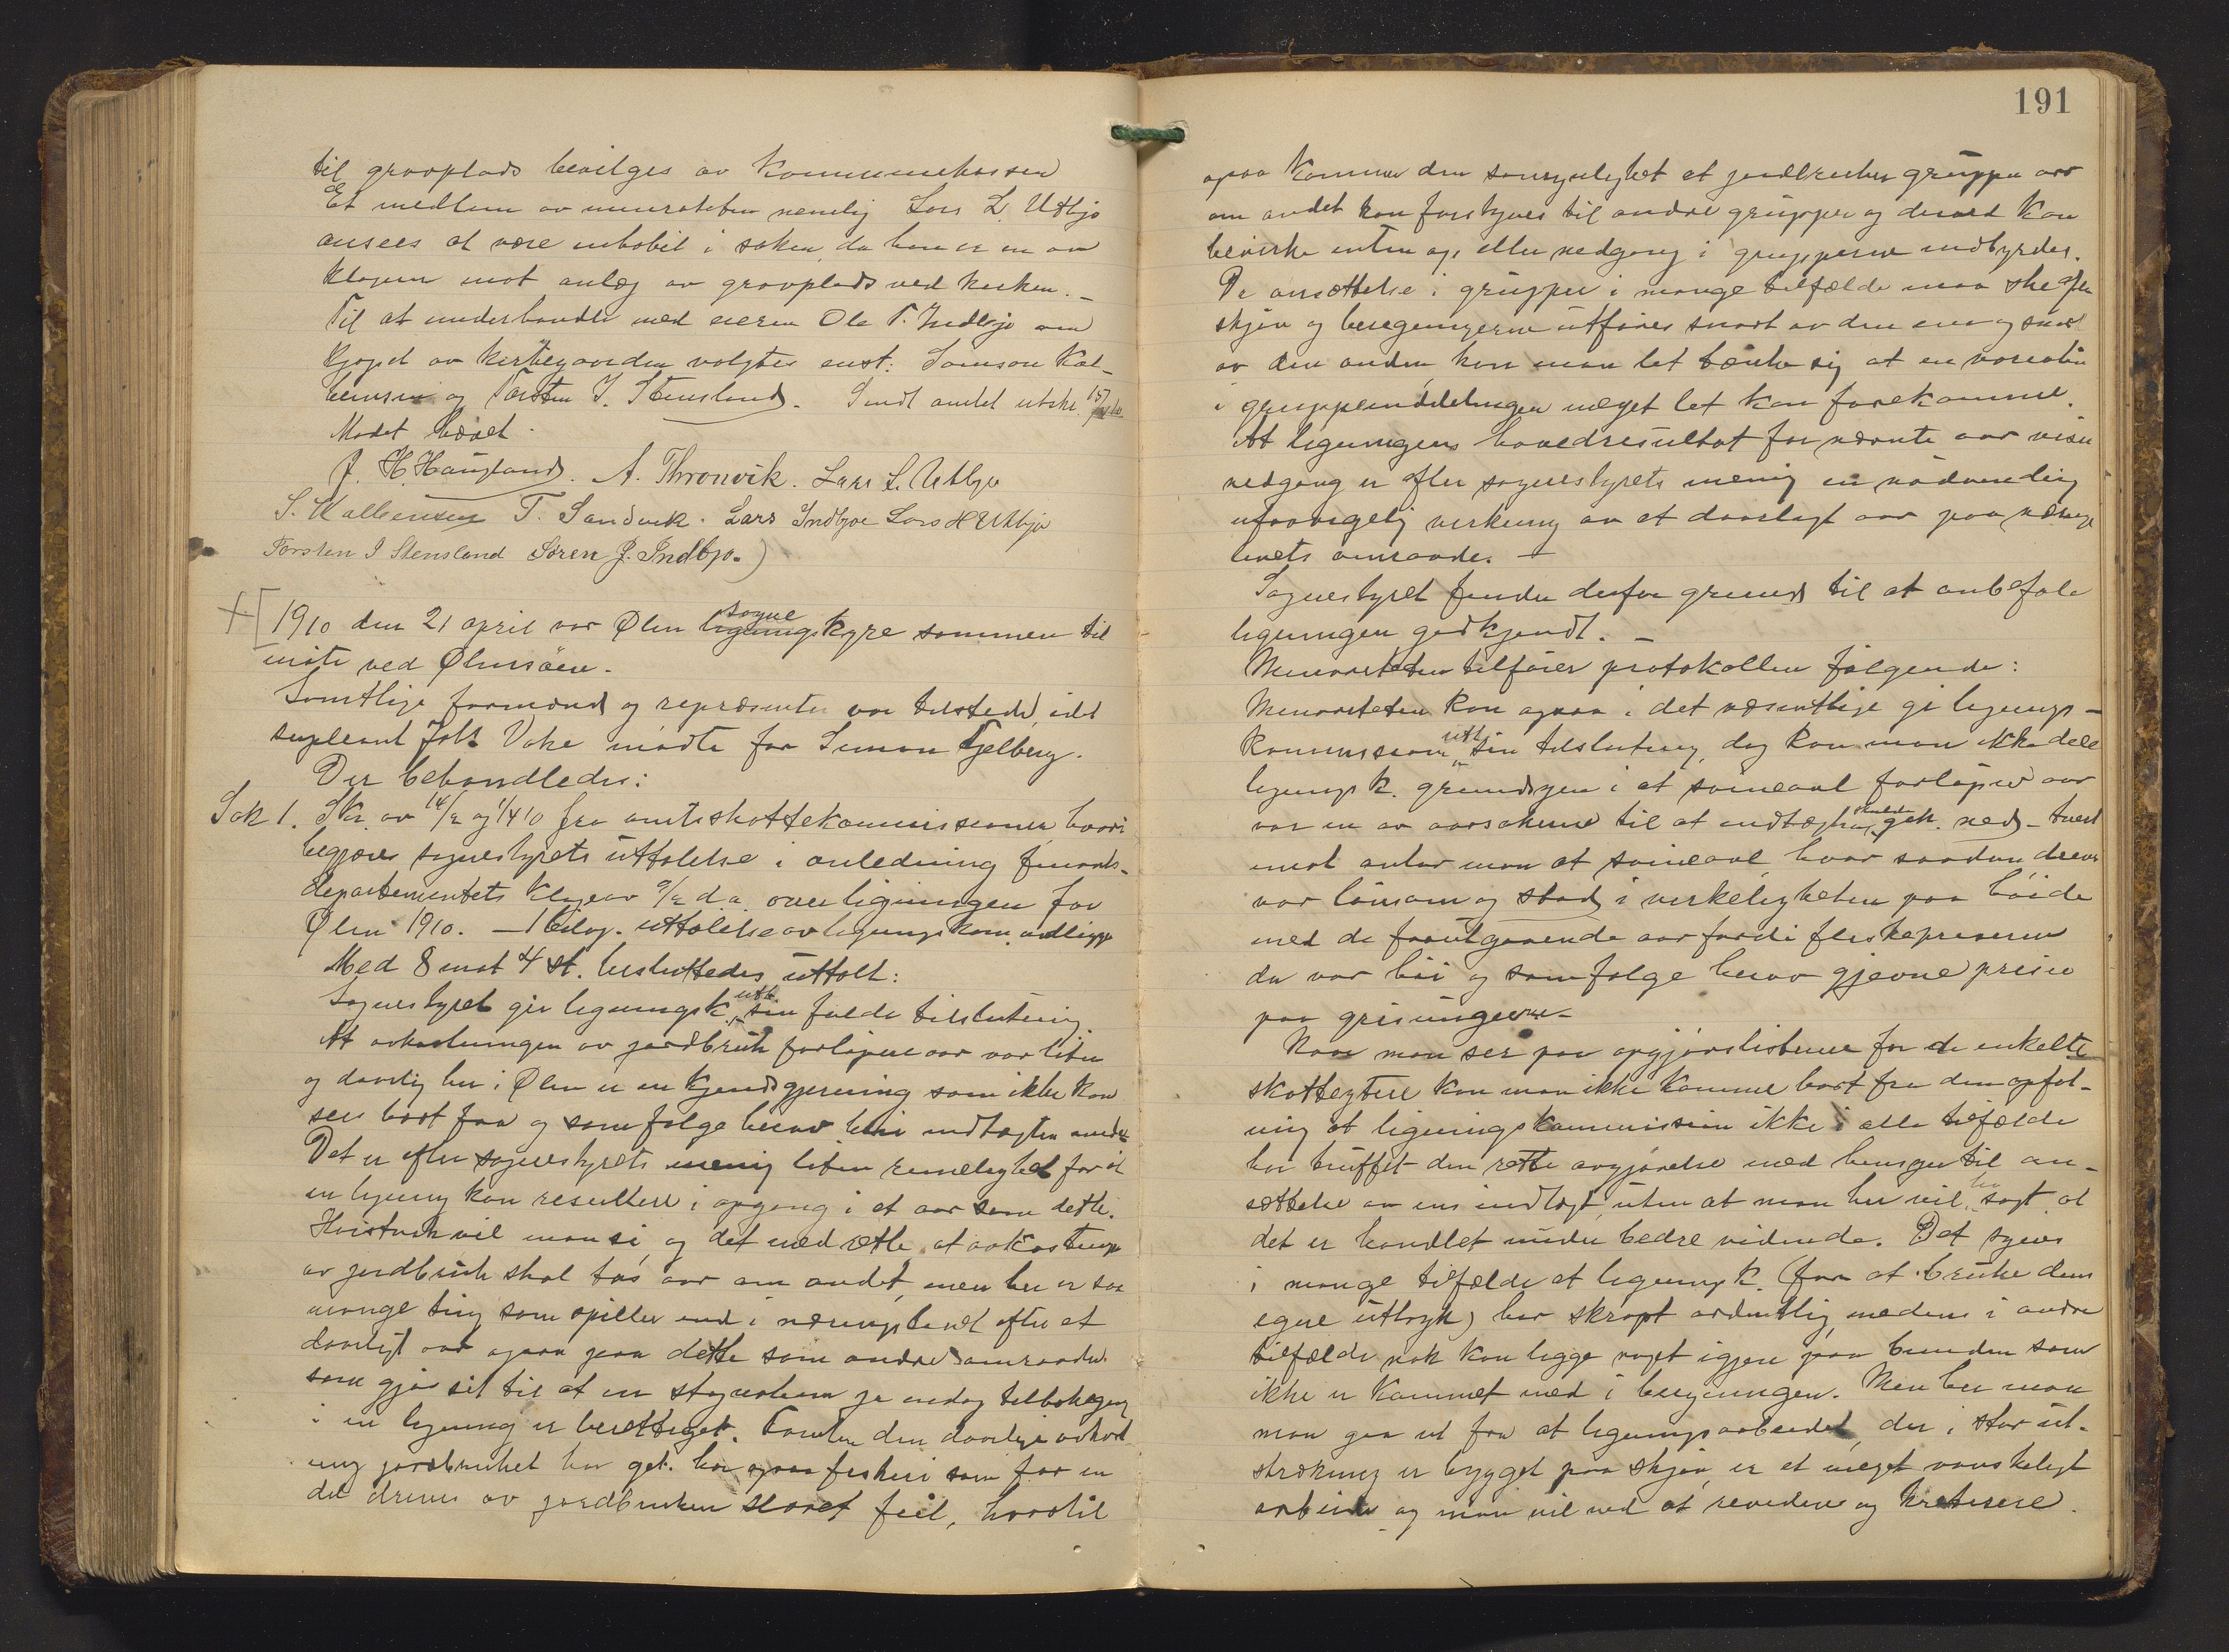 til gravplads bevilges av Kommunekassen
Et medlem av minoriteten nemlig Lars L. Utbjo
ansees at være inhabil i saken, da han er en av
klagerne mot anlæg av gravplads ved kirken. –
Til at underhandle med eieren Ole T. Indbjo om
kjøpet av kirkegaarden valgtes enst: Samson Kal-
beinsen og Torsten J. Stensland. Sendt amtet utskr. 15/
Mødet hævet.
J. H. Haugland. A. Thronvik. Lars L. Utbjo
S. Kalbeinsen T. Sandvik. Lars Indbjoe Lars H Utbjo
Torsten J Stensland Søren J. Indbjo.)
1910 den 21 april var Ølen sogne styre sammen til
møte ved Ølensøen.
Samtlige formænd og repræsenter var tilstede, idet
supleant Joh. Vake møtte for Simon Tjelberg.
Der behandledes:
Sak 1. Skr. av 14/2 og 1/4 10 fra amtsskattekommissionen hvori
begjæres sognestyrets uttalelse i anledning finants-
departementets klage av 9/2 d.a. over ligningen for
Ølen 1910. – 1 bilag. uttalelse av ligningskom. vedligger
Med 8 mot 4 st. besluttedes uttalt:
Sognestyret gir ligningsk. utt. sin fulde tilslutning.
At avkastningen av jordbruk forløpne aar var liten
og daarlig her i Ølen er en kjendsgjerning som ikke kan
sees bort fra og som følge herav blir indtægten mindre
Det er efter sognestyrets mening liten rimelighet for at
en ligning kan resultere i opgang i et aar som dette.
Hvistnok vil man si, og det med rette at avkastninge
av jordbruk skal tas aar om andet, men her er saa
mange ting som spiller ind i næringslivet efter et
daarligt aar ogsaa paa dette som andre omraader
som gjør sit til at en stagnation ja endog tilbakegang
i en ligning er berettiget. Foruten den daarlige avkast
ning jordbruket har git. har ogsaa fiskeri som for en
del drives av jordbrukere slaaet feil, hvortil
191
ogsaa kommer den sansynlighet at jordbruker gruppen aar
om andet kan forskyves til andre grupper og derved kan
bevirke enten op, eller nedgang i grupperne indbyrdes.
Da ansættelse i grupper i mange tilfælde maa ske efter
skjøn og beregningerne utføres snart av den ene og snart
av den anden, kan man let tænke sig at en variation
i gruppeinddelingen meget let kan forekomme.
At ligningens hovedresultat for nævnte aar viser
nedgang er efter sognestyrets mening en nødvendig
ufravigelig virkning av et daarligt aar paa nærings
livets omraade. –
Sognestyret finder derfor grund til at anbefale
ligningen godkjendt. –
Minoriteten tilfører protokollen følgende:
Minoriteten kan ogsaa i det væsentlige gi lignings-
kommissionens utt. sin tilslutning, dog kan man ikke dele
ligningsk. grundsyn i at svineavl forløpne aar
var en av aarsakene til at indtægten skulde gak ned – tvert
imot antar man at svineavl, hvor saadan dreves
var lønsom og stod i virkeligheten paa høide
med de forutgaaende aar fordi fleskepriserne
da var høi og som følge herav gjævne priser
paa grisungerne –
Naar man ser paa opgjørslisterne for de enkelte
skatteytere kan man ikke komme bort fra den opfat-
ning at ligningskommission ikke i alle tilfælde
har truffet den rette avgjørelse med hensyn til an-
sættelse av ens indtægt, uten at man her vil ha sagt at
det er handlet under bedre vidende. Det synes
i mange tilfælde at ligningsk. (for at bruke dens
egne uttryk) har skrapt ordentlig, medens i andre
tilfælde nok kan ligge noget igjen paa bunden som
ikke er kommet med i beregningen. Men her maa
man gaa ut fra at ligningsarbeidet, der i stor ut-
strækning er bygget paa skjøn, er et meget vanskeligt
arbeide og man vil ved at revidere og kritisere